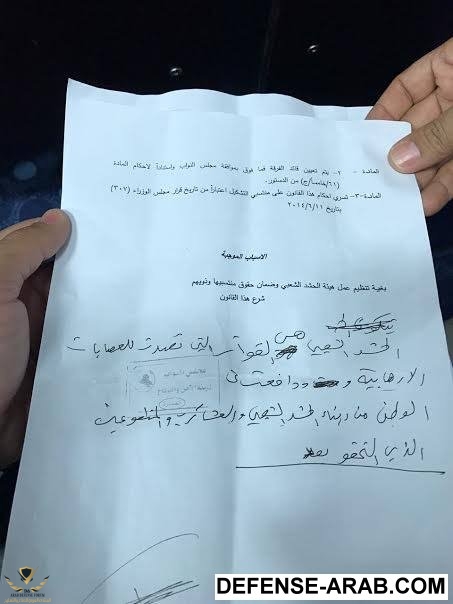 المادة - ٢- يتم تعيين قائد الفرقة فما فوق بموافقة مجلس النواب واستناداً لأحكام المادة
(٦١/خامساً/ج) من الدستور.
المادة -٣- تسري احكام هذا القانون على منتسبي التشكيل اعتباراً من تاريخ قرار مجلس الوزراء (٣٠٧)
بتاريخ ٢٠١٤/٦/١١
الاسباب الموجبة
بغية تنظيم عمل هيئة الحشد الشعبي وضمان حقوق منتسبيها وذويهم
شرع هذا القانون
الحشد الشعبي هي القوات التي تصدت للعصابات
الارهابية و ودافعت
الوطن من ابناء الحشد الشعبي والعشائر والمتطوعين
الذي التحقو
مجلس النواب
لجنة الأمن والدفاع
DEFENSE-ARAB.COM